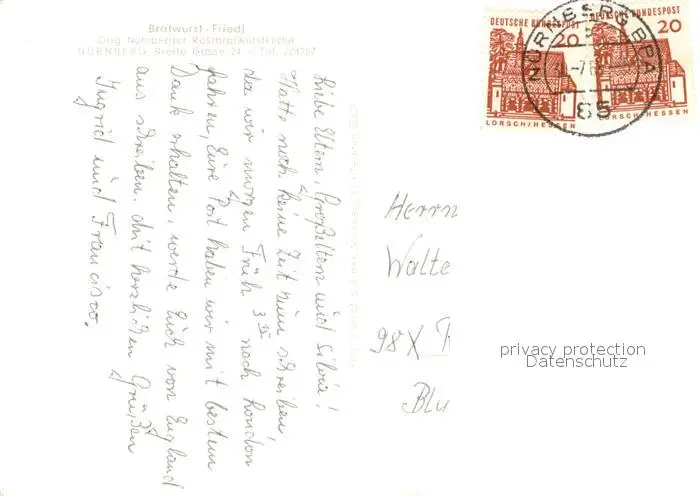 Bratwurst-Friedl
Orig. Nürnberger Rostbratwurstküche
NÜRNBERG, Breite Gasse 21 - Tel. 224297
Liebe Eltern, Großeltern und Silvia!
Hatte noch keine Zeit zum schreiben,
da wir morgen Früh 3 nach London
fahren, Eure Post haben wir mit bestem
Dank erhalten, werde Euch von England
aus schreiben. Mit herzlichen Grüßen
Ingrid und Francisco.
DEUTSCHE BUNDESPOST
20
LORSCH/HESSEN
DEUTSCHE BUNDESPOST
20
LORSCH/HESSEN
NÜRNBERG BPA
85
Herrn
Walte
98X
Blu
privacy protection
Datenschutz